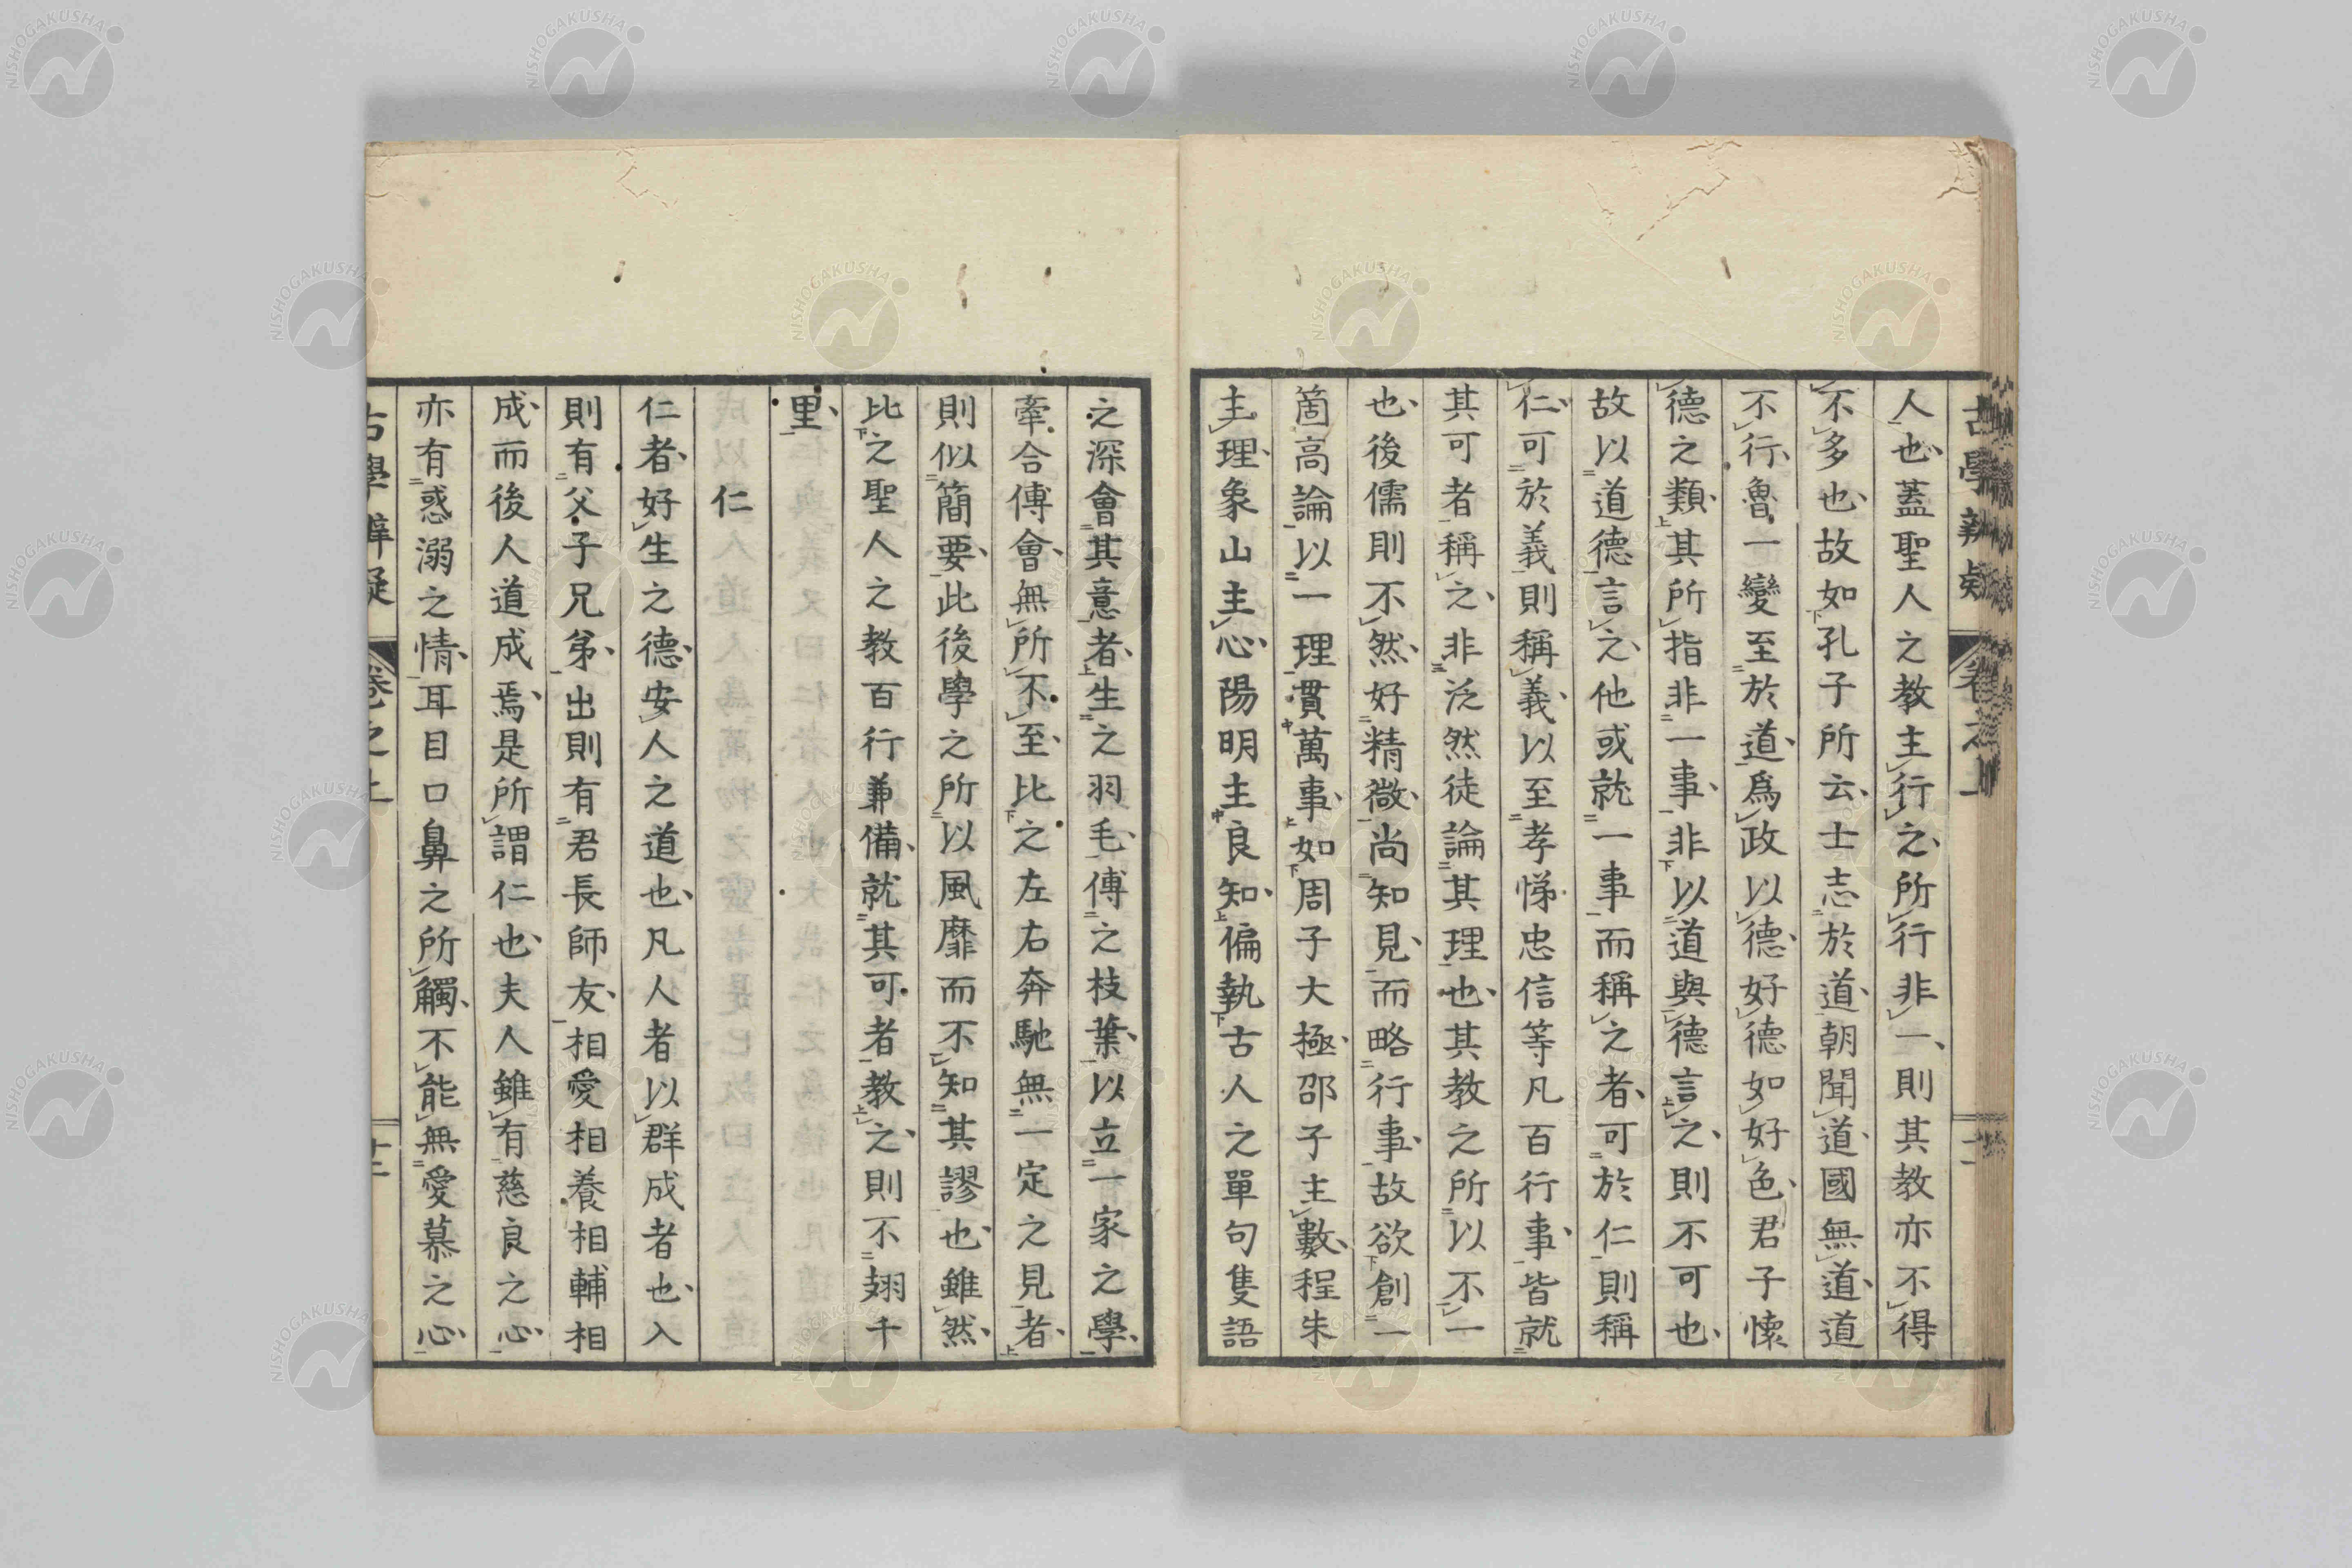 人也蓋聖人之教主行之所行非一則其教亦不得
不多也故如孔子所云士志於道朝聞道國無道道
不行魯一變至於道爲政以德好德如好色君子懷
德之類其所指非一事非以道與德言之則不可也
故以道德言之他或就一事而稱之者可於仁則稱
仁可於義則稱義以至孝悌忠信等凡百行事皆就
其可者稱之非泛然徒論其理也其教之所以不一
也後儒則不然好精微尚知見而略行事故欲創一
箇高論以一理貫萬事如周子大極邵子主數程朱
主理象山主心陽明主良知偏執古人之單句隻語
之深會其意者生之羽毛傅之枝葉以立一家之學
牽合傅會無所不至比之左右奔馳無一定之見者
則似簡要此後學之所以風靡而不知其謬也雖然
比之聖人之教百行兼備就其可者教之則不翅千
里
仁
仁者好生之德安人之道也凡人者以群成者也入
則有父子兄弟出則有君長師友相愛相養相輔相
成而後人道成焉是所謂仁也夫人雖有慈良之心
亦有惑溺之情耳目口鼻之所觸不能無愛慕之心
古學辨疑 卷之上 十二